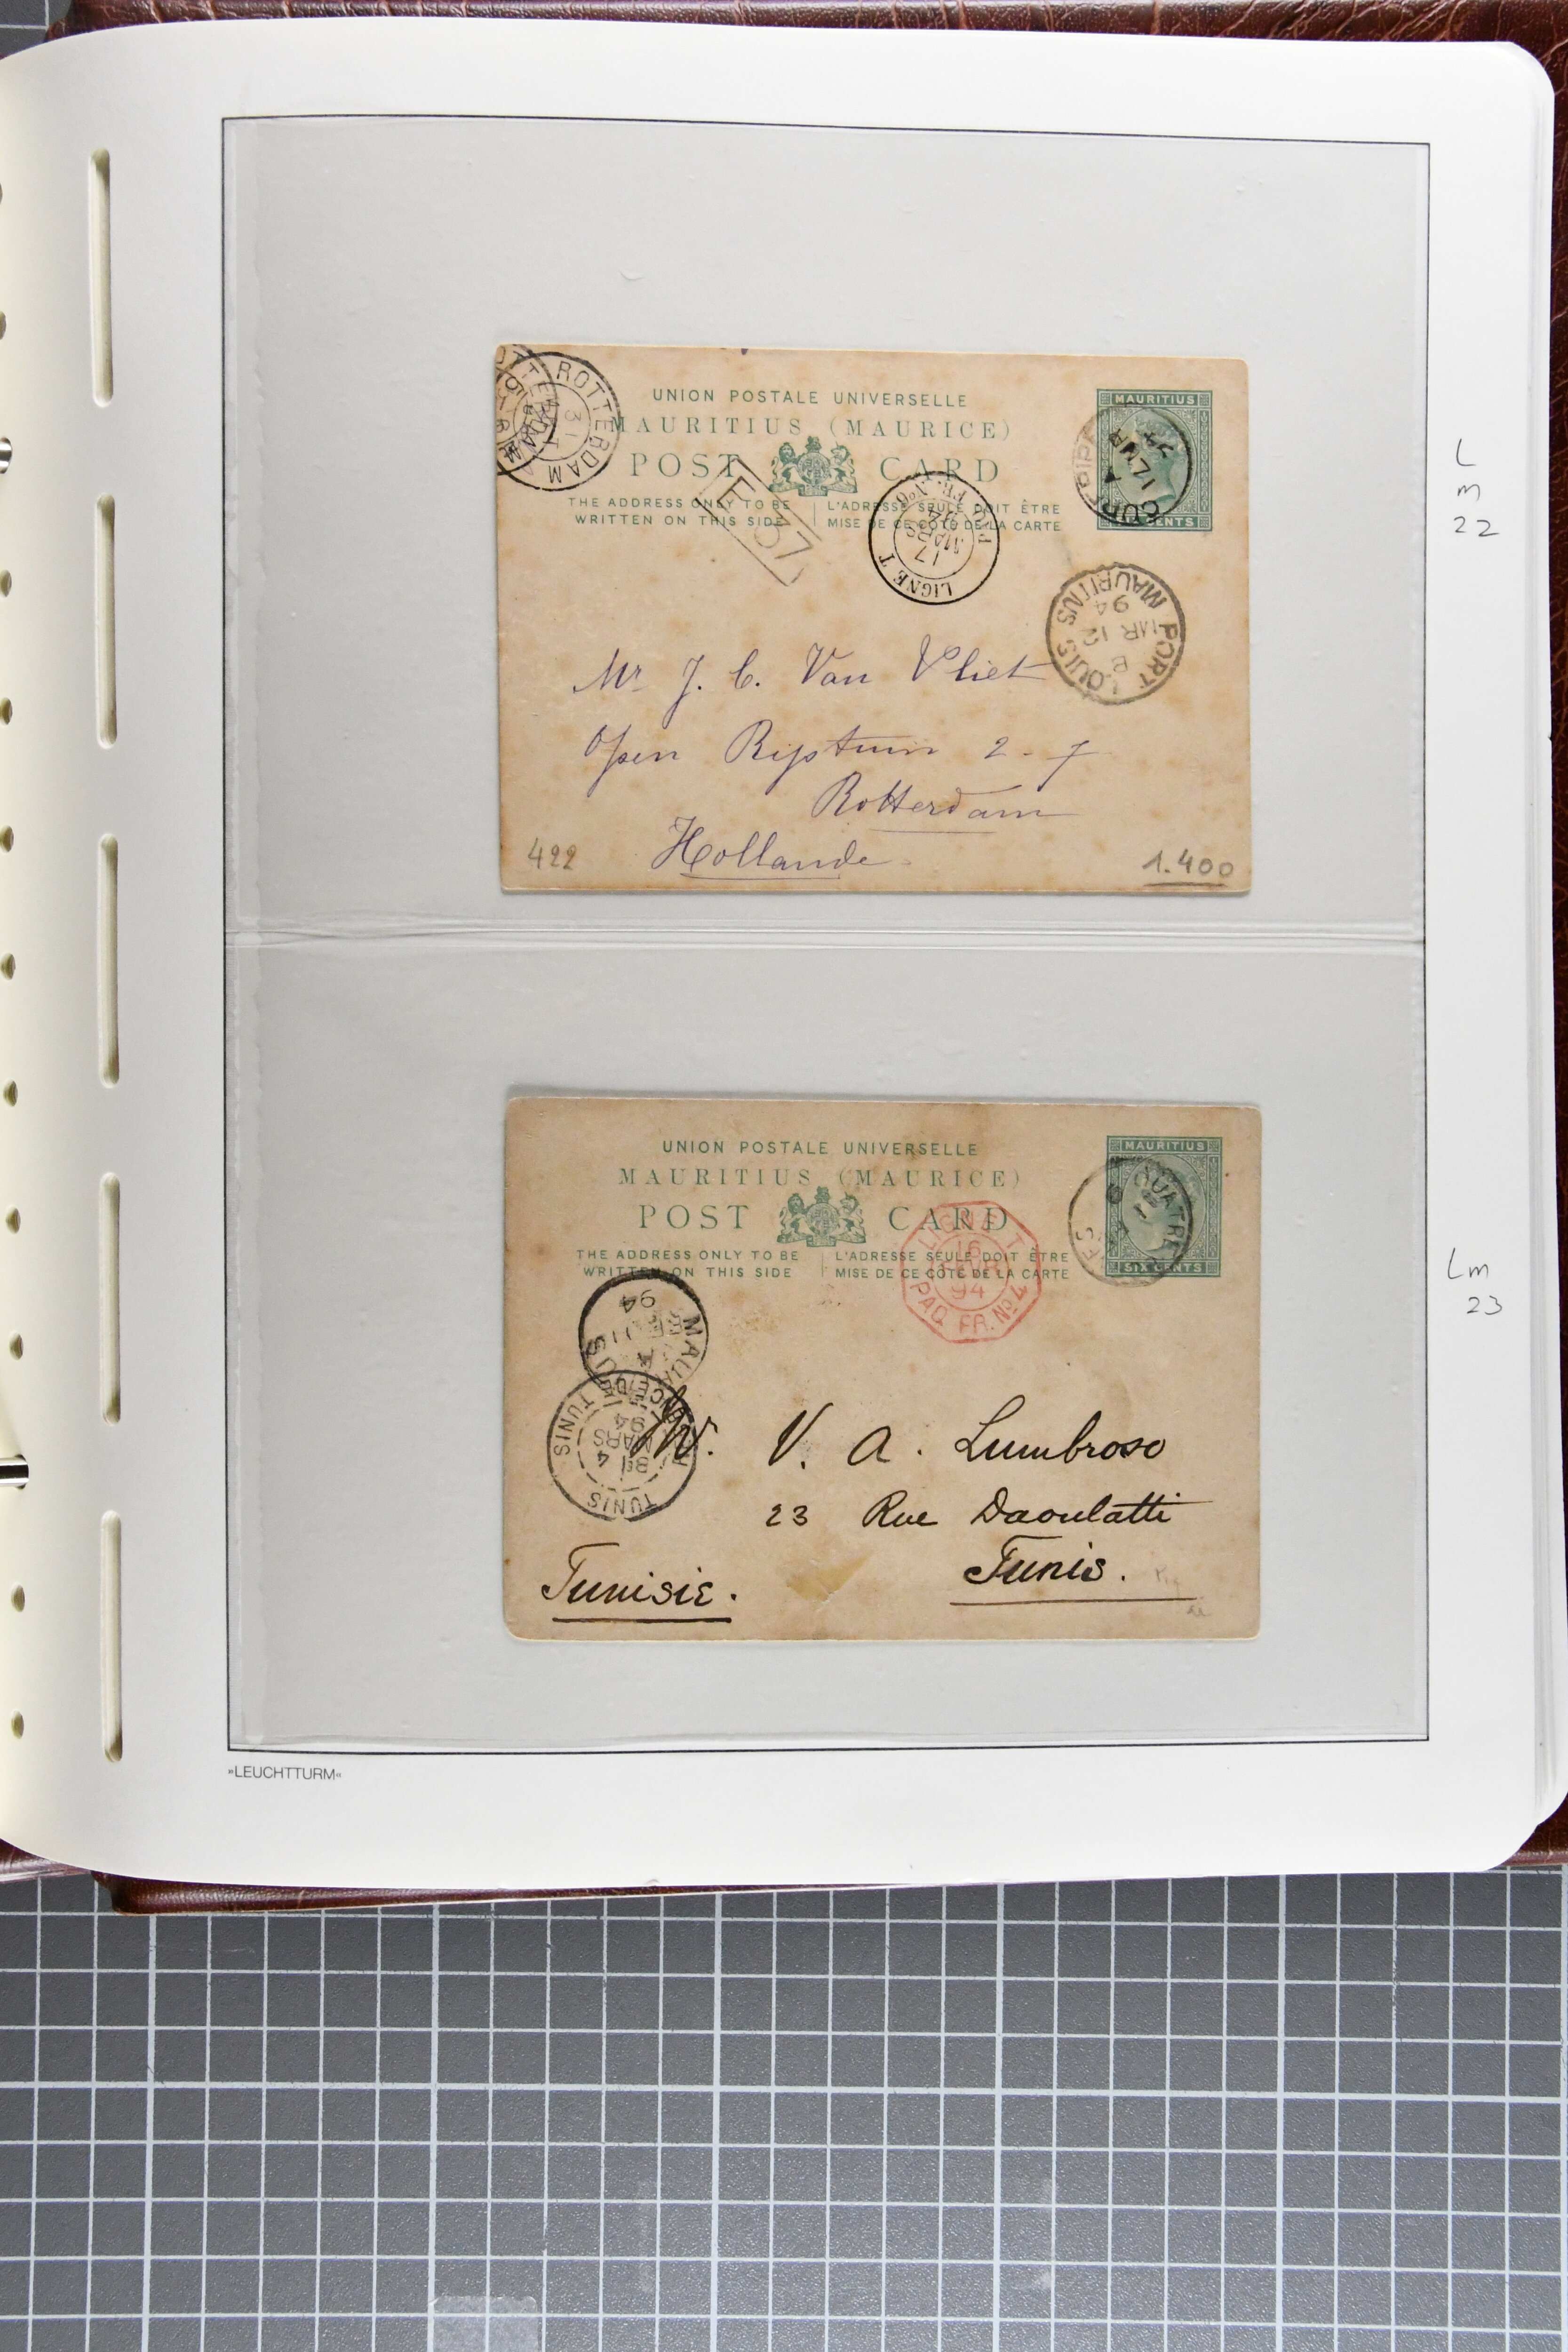 UNION POSTALE UNIVERSELLE
MAURITIUS (MAURICE)
POST CARD
THE ADDRESS ONLY TO BE
WRITTEN ON THIS SIDE
L'ADRESSE SEULE DOIT ÊTRE
MISE DE CE CÔTÉ DE LA CARTE
MAURITIUS
SIX CENTS
ROTTERDAM
LIGNE T
17
MARS
PORT LOUIS
MAURITIUS
B
MR 12
94
Mr J. C. Van Vliet
Rotterdam
Hollande
422
1.400
L
m
22
UNION POSTALE UNIVERSELLE
MAURITIUS (MAURICE)
POST CARD
THE ADDRESS ONLY TO BE
WRITTEN ON THIS SIDE
L'ADRESSE SEULE DOIT ÊTRE
MISE DE CE CÔTÉ DE LA CARTE
MAURITIUS
SIX CENTS
LIGNE T
16
94
PAQ. FR. No 4
94
TUNIS
4
MARS
94
M. V. A. Lumbroso
23 Rue Daoulatti
Tunis.
Tunisie.
Lm
23
»LEUCHTTURM«